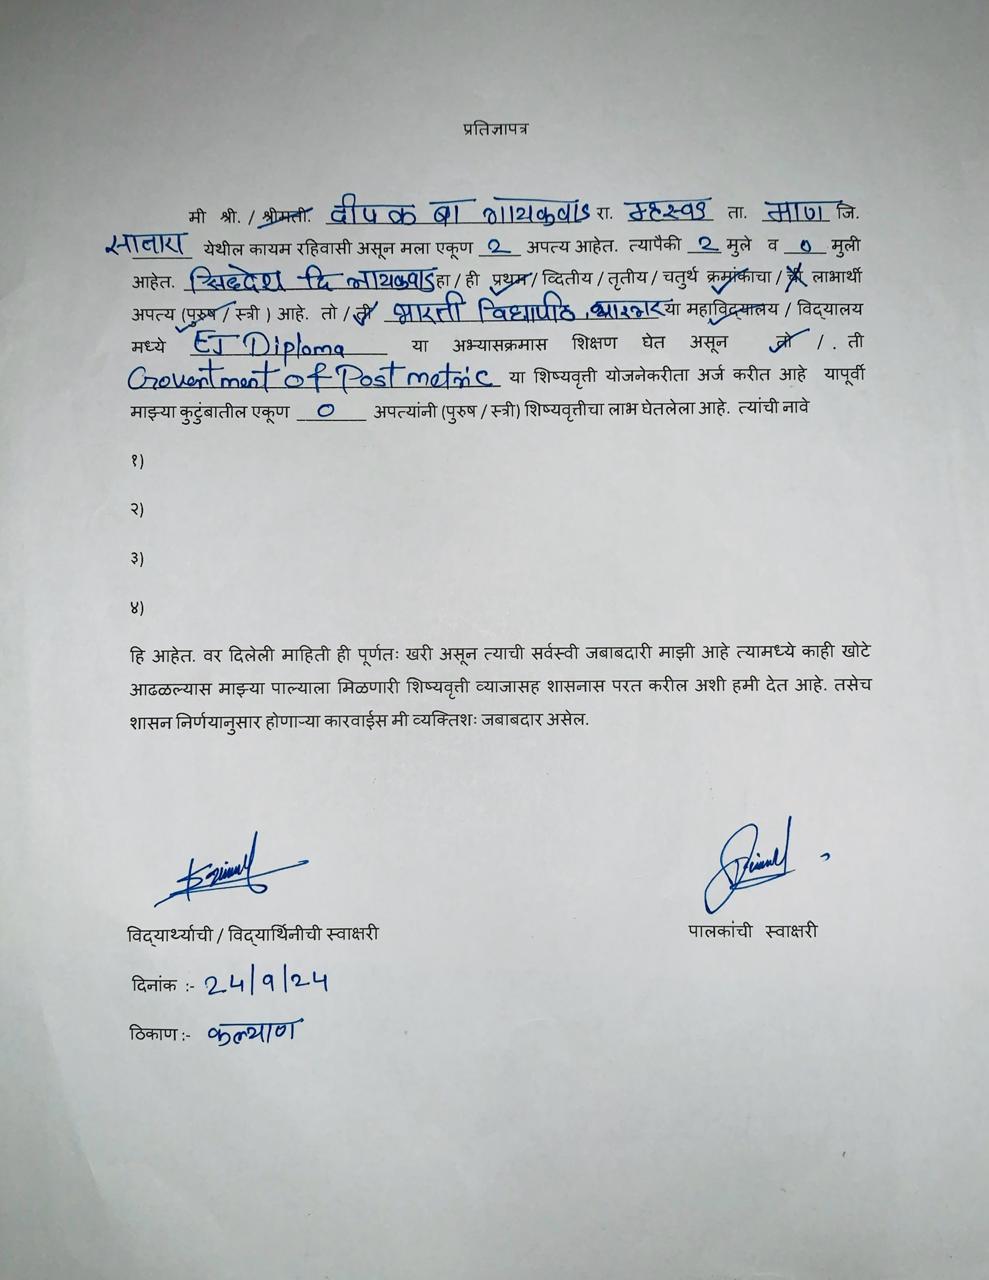 प्रतिज्ञापत्र
मी श्री. / श्रीमती. दीपक बा गायकवाड रा. म्हसवड ता. माण जि.
सातारा येथील कायम रहिवासी असून मला एकूण 2 अपत्य आहेत. त्यापैकी 2 मुले व 0 मुली
आहेत. सिद्धेश दि गायकवाड हा / ही प्रथम / व्दितीय / तृतीय / चतुर्थ क्रमांकाचा / ची लाभार्थी
अपत्य (पुरुष / स्त्री ) आहे. तो / ती भारती विद्यापीठ, या महाविद्यालय / विद्यालय
मध्ये EJ Diploma या अभ्यासक्रमास शिक्षण घेत असून तो / . ती
Goventment of Post metric या शिष्यवृत्ती योजनेकरीता अर्ज करीत आहे यापूर्वी
माझ्या कुटुंबातील एकूण 0 अपत्यांनी (पुरुष / स्त्री) शिष्यवृत्तीचा लाभ घेतलेला आहे. त्यांची नावे
१)
२)
३)
४)
हि आहेत. वर दिलेली माहिती ही पूर्णतः खरी असून त्याची सर्वस्वी जबाबदारी माझी आहे त्यामध्ये काही खोटे
आढळल्यास माझ्या पाल्याला मिळणारी शिष्यवृत्ती व्याजासह शासनास परत करील अशी हमी देत आहे. तसेच
शासन निर्णयानुसार होणाऱ्या कारवाईस मी व्यक्तिशः जबाबदार असेल.
विद्यार्थ्याची / विद्यार्थिनीची स्वाक्षरी पालकांची स्वाक्षरी
दिनांक :- 24/9/24
ठिकाण :- कल्याण